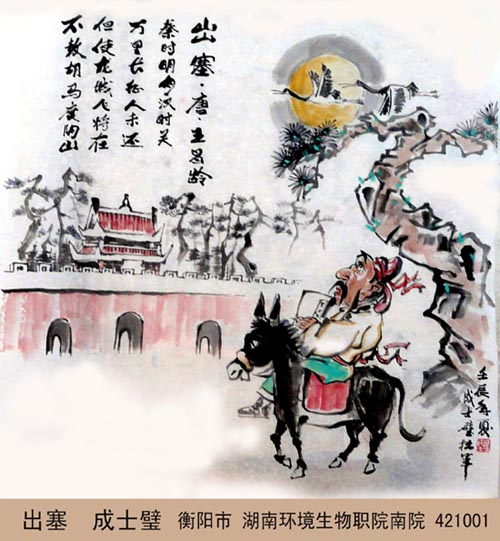 出塞·唐·王昌龄
秦时明月汉时关
万里长征人未还
但使龙城飞将在
不教胡马度阴山
壬辰春
成士璧拙笔
出塞 成士璧 衡阳市 湖南环境生物职院南院 421001